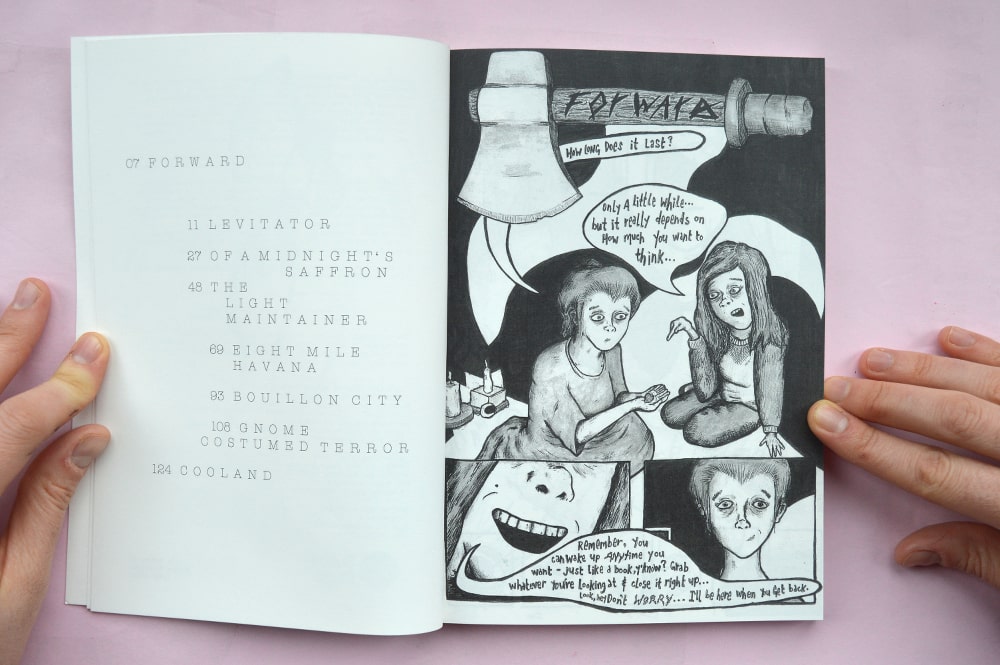 07 FORWARD
11 LEVITATOR
27 OF A MIDNIGHT'S
SAFFRON
48 THE
LIGHT
MAINTAINER
69 EIGHT MILE
HAVANA
93 BOUILLON CITY
108 GNOME
COSTUMED TERROR
124 COOLAND
FORWARD
How Long Does it Last?
only A little while...
but it really depends on
How much you want to
think...
Remember, you
can wake up ANytime you
want - just like a book, y'know? Grab
whatever you're looking at & close it right up...
Look, hey Don't WORRY... I'll be here when you Get back.